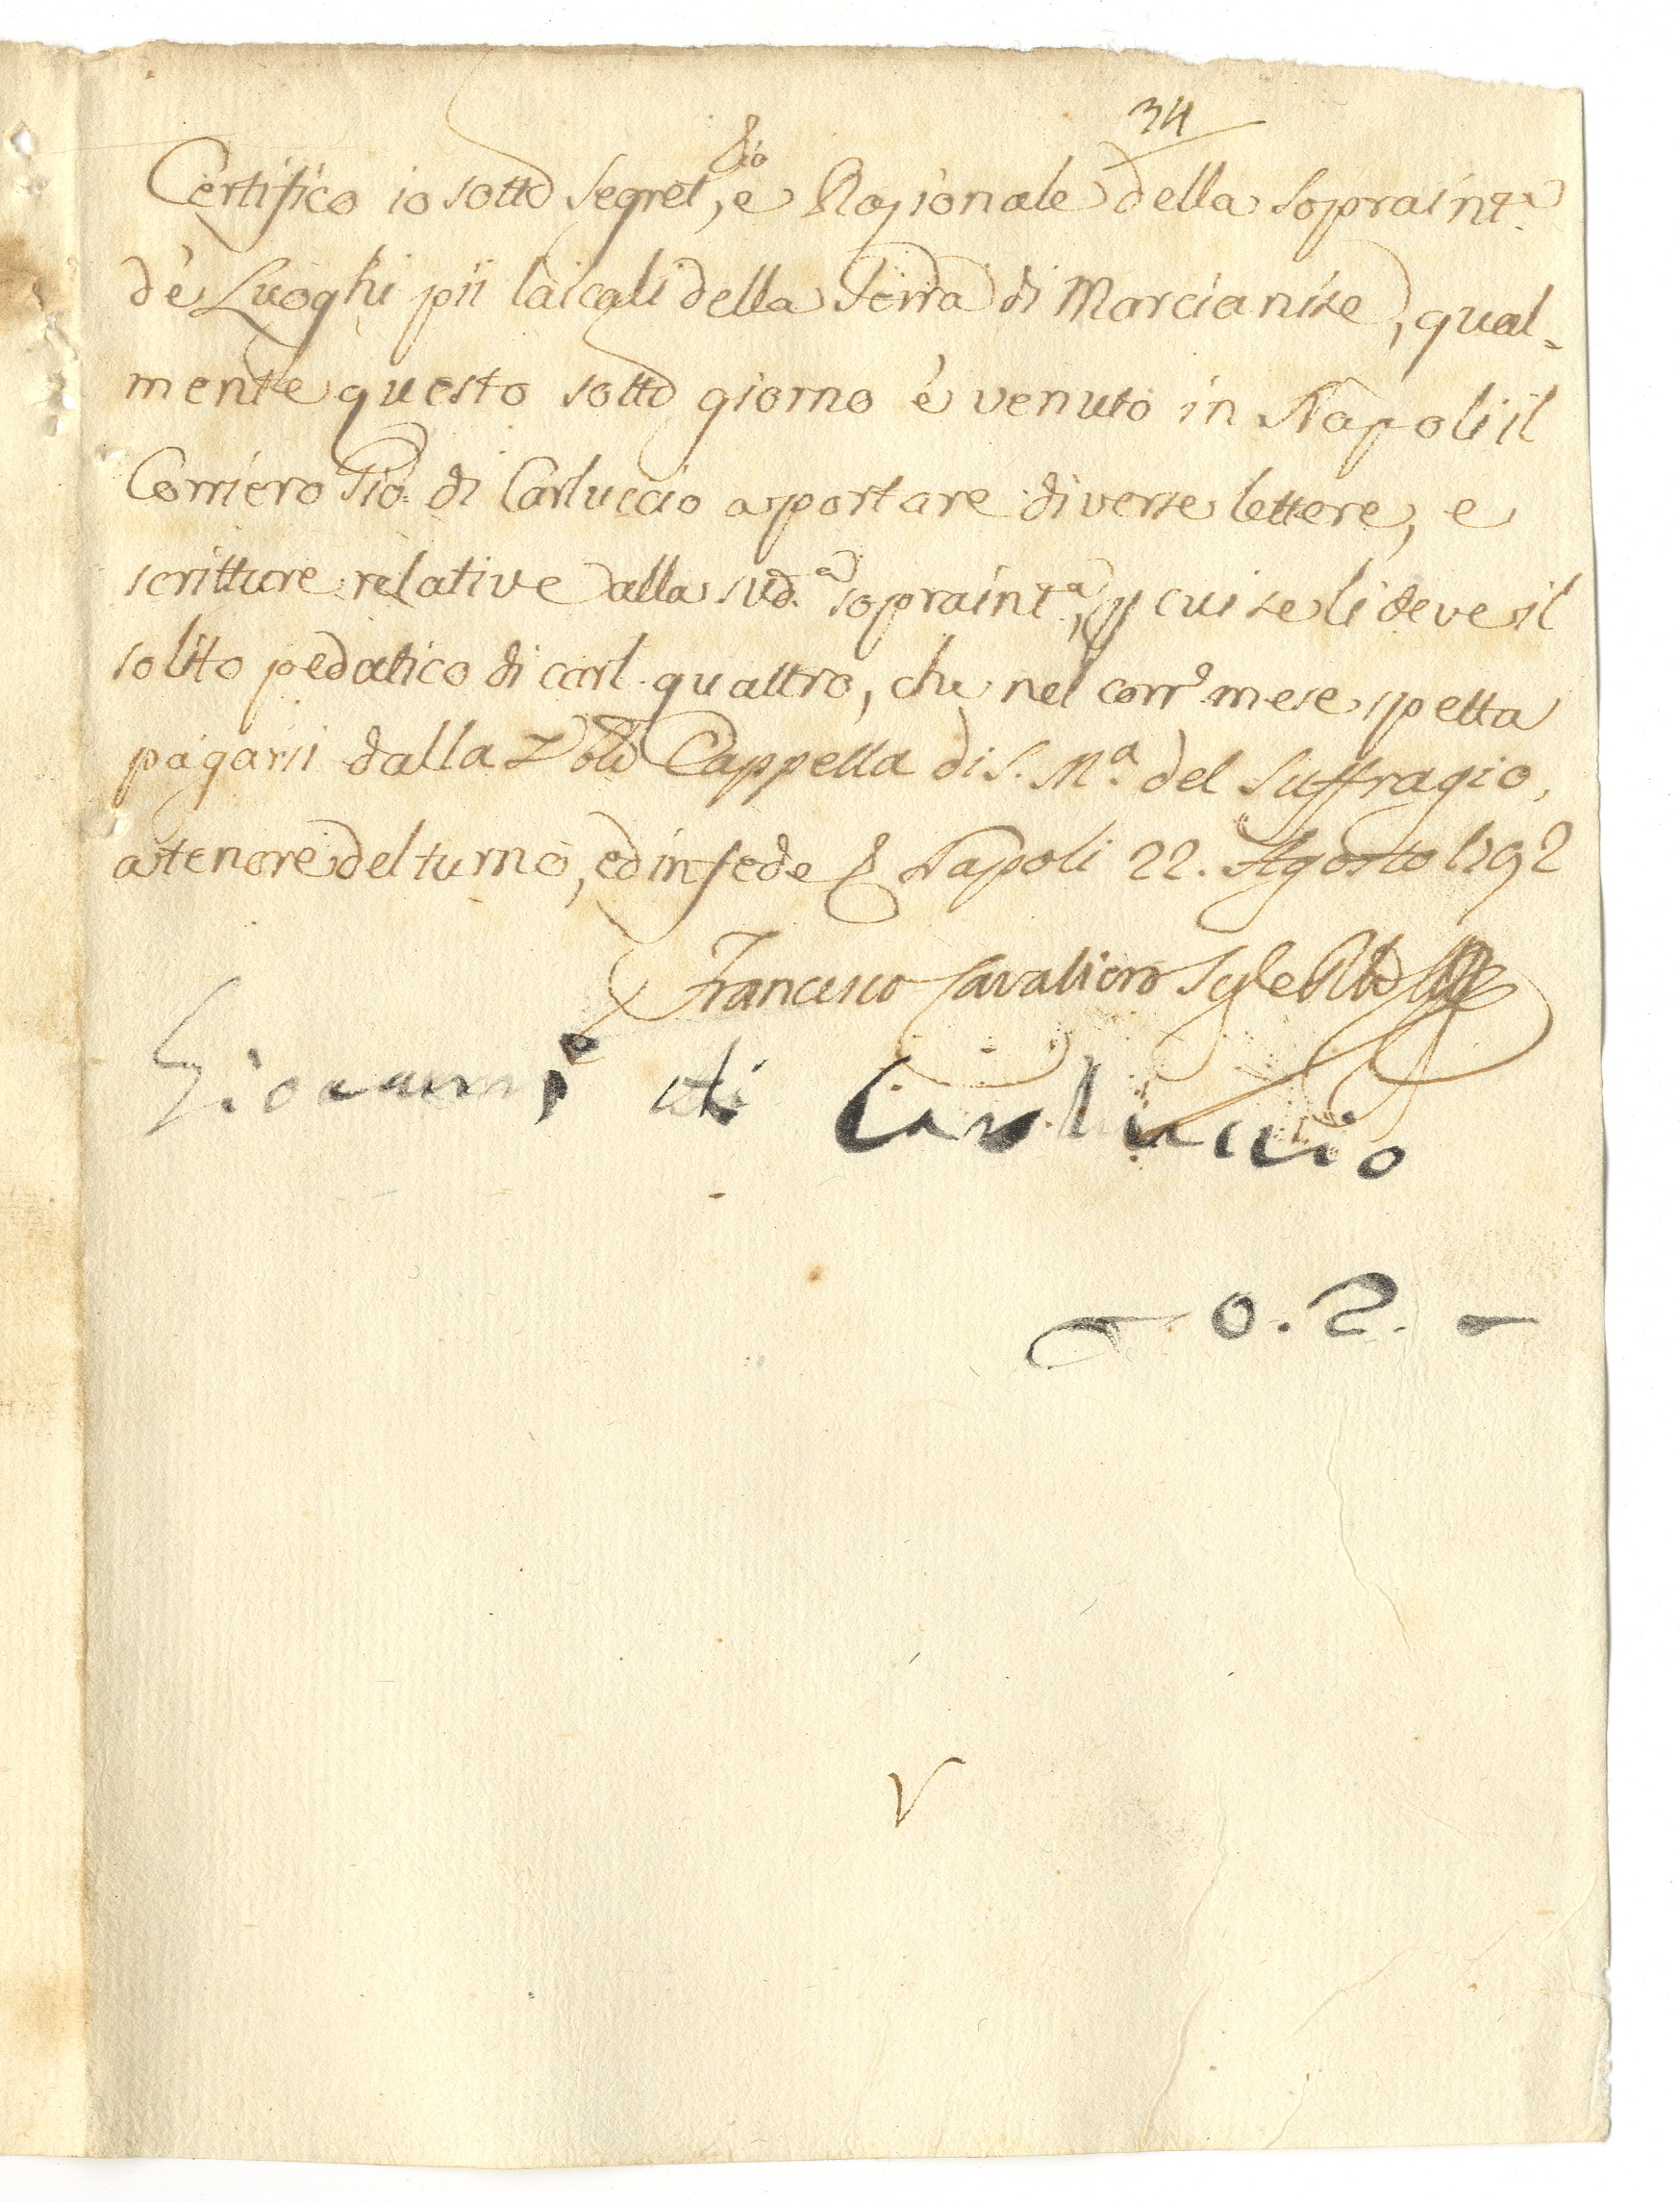 34
Certifico io sotto Segret.rio, e Razionale della Sopraint.a
de' Luoghi pii laicali della Terra di Marcianise, qual-
mente questo sotto giorno è venuto in Napoli il
Corriero Gio: di Carluccio a portare diverse lettere, e
scritture relative alla sud.a sopraint.a, p cui se li deve il
solito pedatico di carl. quattro, che nel corr.e mese spetta
pagarsi dalla Cappella di S. M.a del Suffragio,
a tenore del turno, ed in fede & Napoli 22. Agosto 1792
Francesco Cavaliero Seg.e
Giovanni di Carluccio
0. 2. -
V